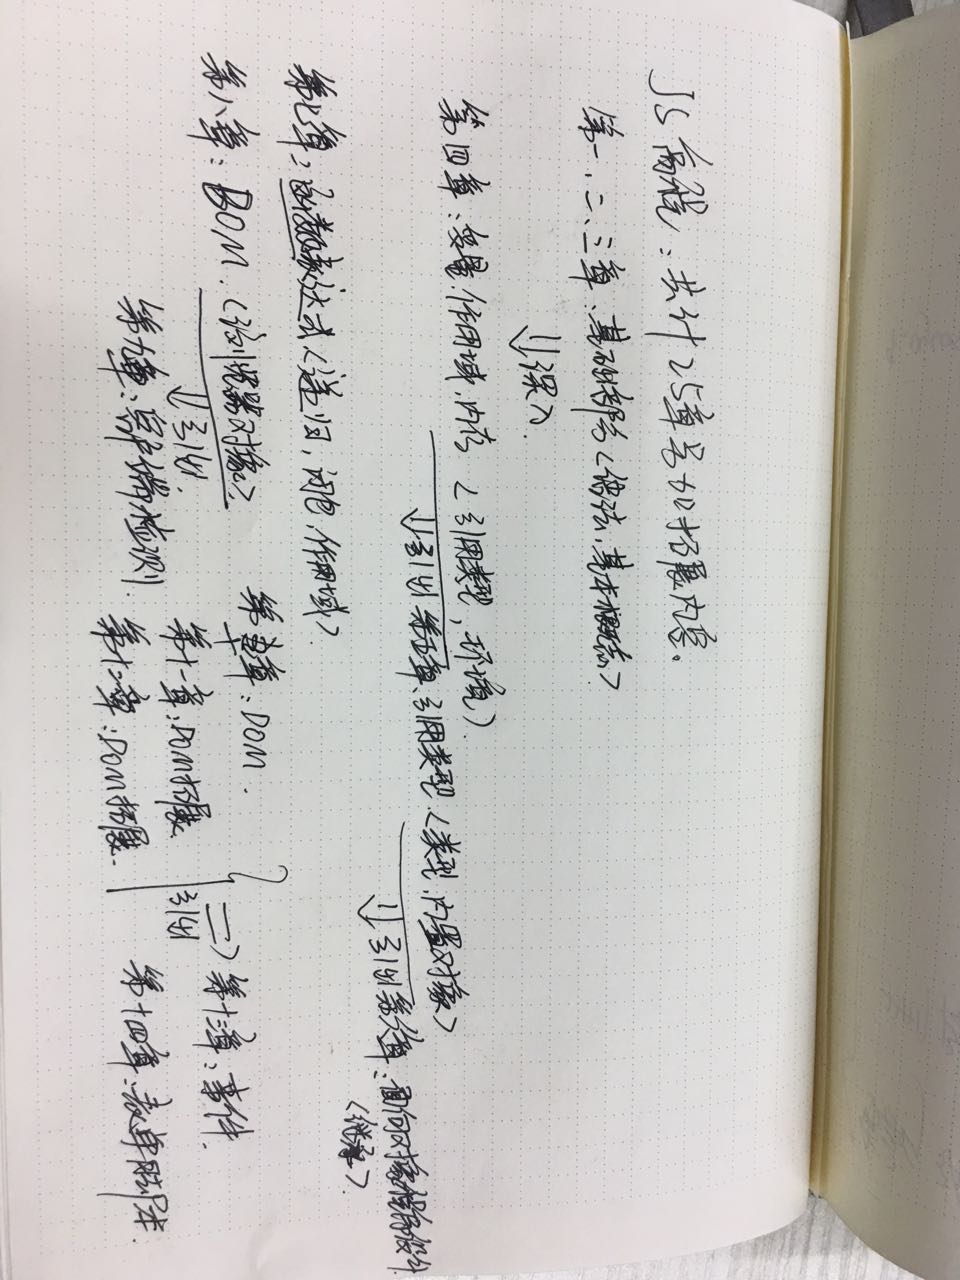 JS高程：共计25章专加拓展内容。
第一、二、三章、基础部分<语法、基本概念>
深入.
第四章、变量.作用域.内存 <引用类型，环境>
引出 第五章、引用类型.<类型.内置对象>
引出 第六章：面向对象程序设计
<继承>.
第七章：函数表达式<递归，闭包.作用域>
第八章：BOM.<浏览器对象>
引出
第九章：客户端检测.
第十章：DOM.
第十一章：DOM拓展
第十二章：DOM拓展.
引出
第十三章：事件.
第十四章：表单脚本